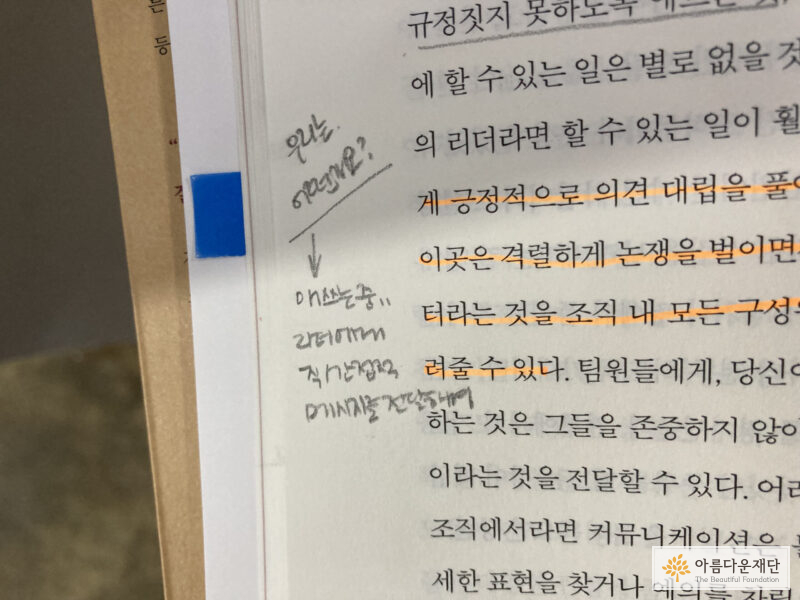 규정짓지 못하도록 애쓰는
에 할 수 있는 일은 별로 없을 것
의 리더라면 할 수 있는 일이 훨
게 긍정적으로 의견 대립을 풀어
이곳은 격렬하게 논쟁을 벌이면
터라는 것을 조직 내 모든 구성원
려줄 수 있다. 팀원들에게, 당신이
하는 것은 그들을 존중하지 않아
이라는 것을 전달할 수 있다. 어려
조직에서라면 커뮤니케이션은
세한 표현을 찾거나 예의를 차릴
우리는
어떤가요?
애쓰는 중..
리더에게
직/간접적
메시지를 전달하며
아름다운재단
The Beautiful Foundation